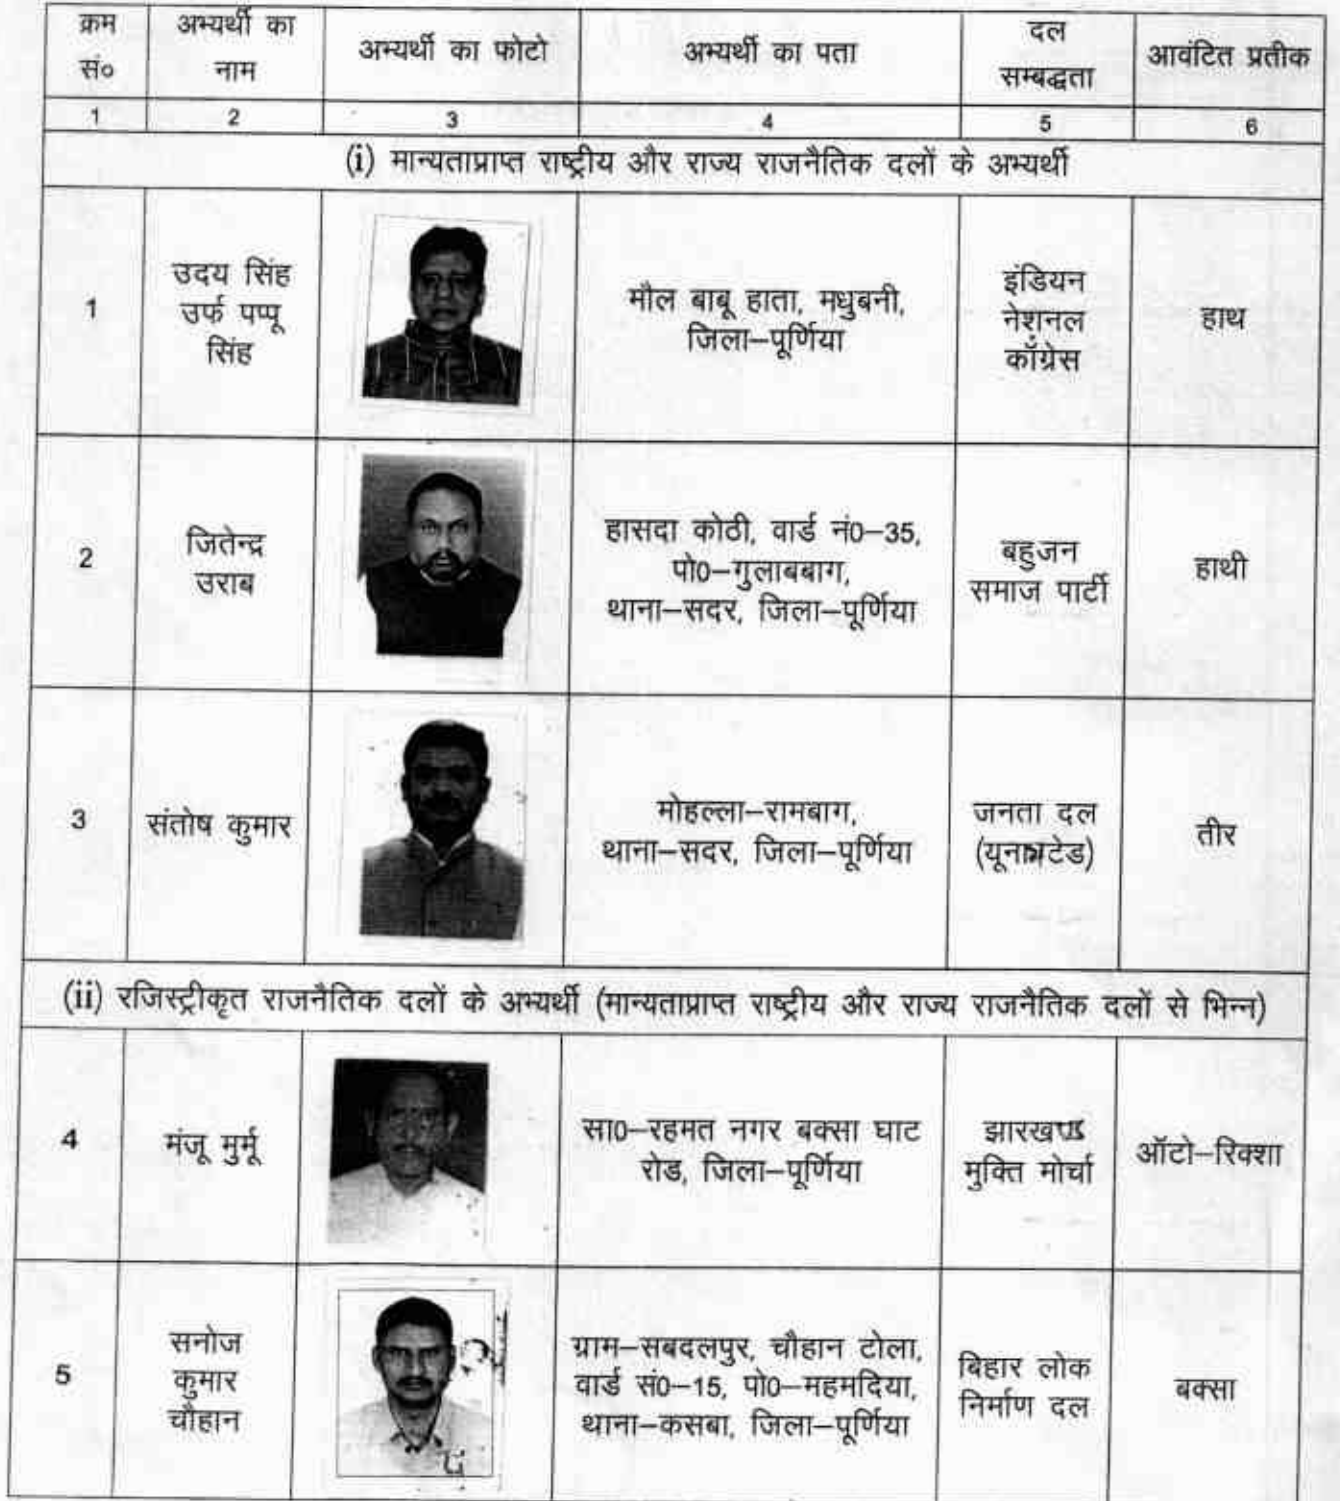 क्रम सं०
अभ्यर्थी का नाम
अभ्यर्थी का फोटो
अभ्यर्थी का पता
दल सम्बद्धता
आवंटित प्रतीक
1 2 3 4 5 6
(i) मान्यताप्राप्त राष्ट्रीय और राज्य राजनैतिक दलों के अभ्यर्थी
1
उदय सिंह
उर्फ पप्पू
सिंह
मौल बाबू हाता, मधुबनी,
जिला–पूर्णिया
इंडियन
नेशनल
कॉंग्रेस
हाथ
2
जितेन्द्र
उराब
हासदा कोठी, वार्ड नं0–35,
पो0–गुलाबबाग,
थाना–सदर, जिला–पूर्णिया
बहुजन
समाज पार्टी
हाथी
3
संतोष कुमार
मोहल्ला–रामबाग,
थाना–सदर, जिला–पूर्णिया
जनता दल
तीर
(ii) रजिस्ट्रीकृत राजनैतिक दलों के अभ्यर्थी (मान्यताप्राप्त राष्ट्रीय और राज्य राजनैतिक दलों से भिन्न)
4
मंजू मुर्मू
सा0–रहमत नगर बक्सा घाट
रोड, जिला–पूर्णिया
झारखण्ड
मुक्ति मोर्चा
ऑटो–रिक्शा
5
सनोज
कुमार
चौहान
ग्राम–सबदलपुर, चौहान टोला,
वार्ड सं0–15, पो0–महमदिया,
थाना–कसबा, जिला–पूर्णिया
बिहार लोक
निर्माण दल
बक्सा